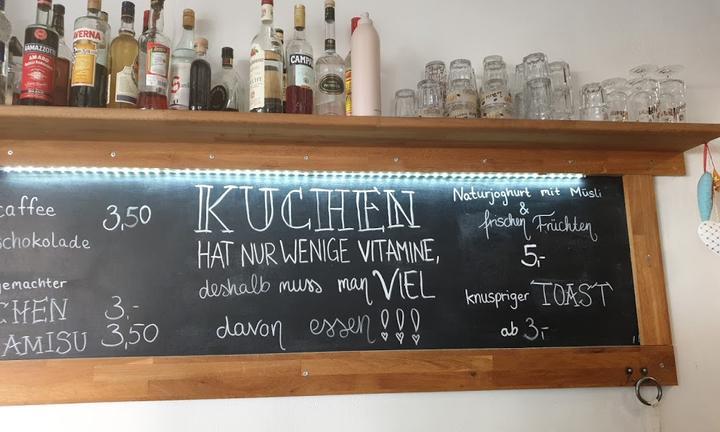 RAMAZZOTTI
AMARO
AVERNA
CAMPARI
caffee 3,50
schokolade
gemachter
CHEN 3,-
AMISU 3,50
KUCHEN
HAT NUR WENIGE VITAMINE,
deshalb muss man VIEL
davon essen!!!
Naturjoghurt mit Müsli
&
frischen Früchten
5,-
knuspriger TOAST
ab 3,-